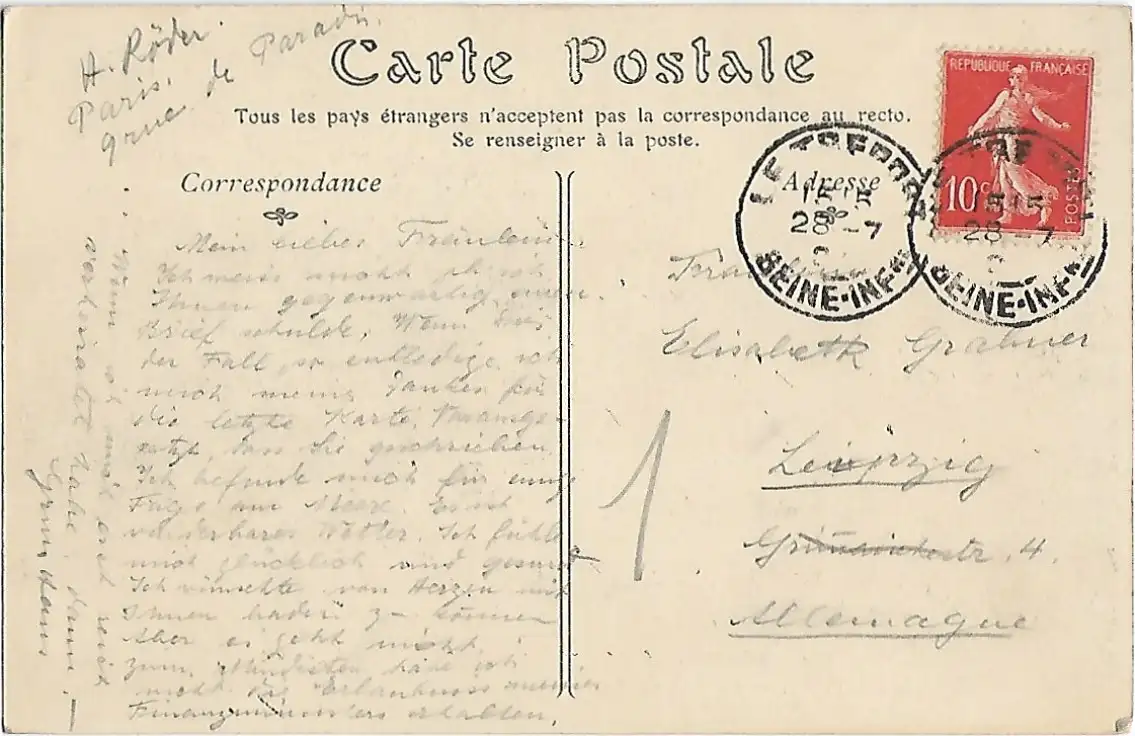 H. Röder.
Paris,
9 rue de Paradis.
Carte Postale
Tous les pays étrangers n'acceptent pas la correspondance au recto.
Se renseigner à la poste.
Correspondance
Adresse
REPUBLIQUE FRANÇAISE
10 c
POSTES
LE TREPORT
15 15
28 -7
SEINE-INFRE
LE TREPORT
15 15
28 7
SEINE-INFRE
Mein liebes Fräulein.
Ich weiss nicht ob ich
Ihnen gegenwärtig einen
Brief schulde. Wenn dies
der Fall, so entledige ich
mich meines Dankes für
die letzte Karte. Vorausge-
setzt, dass Sie geschrieben.
Ich befinde mich für einige
Tage am Meere. Es ist
wunderbares Wetter. Ich fühle
mich glücklich und gesund
Ich wünschte von Herzen mit
Ihnen baden zu können
Aber es geht nicht.
Zum Mindesten habe ich
nicht die Erlaubniss meines
Finanzministers erhalten.
Wenn ich mich erst reich
verheiratet habe, dann.—
Gruss Hans
Elisabeth Grahner
Leipzig
4.
Allemagne
1